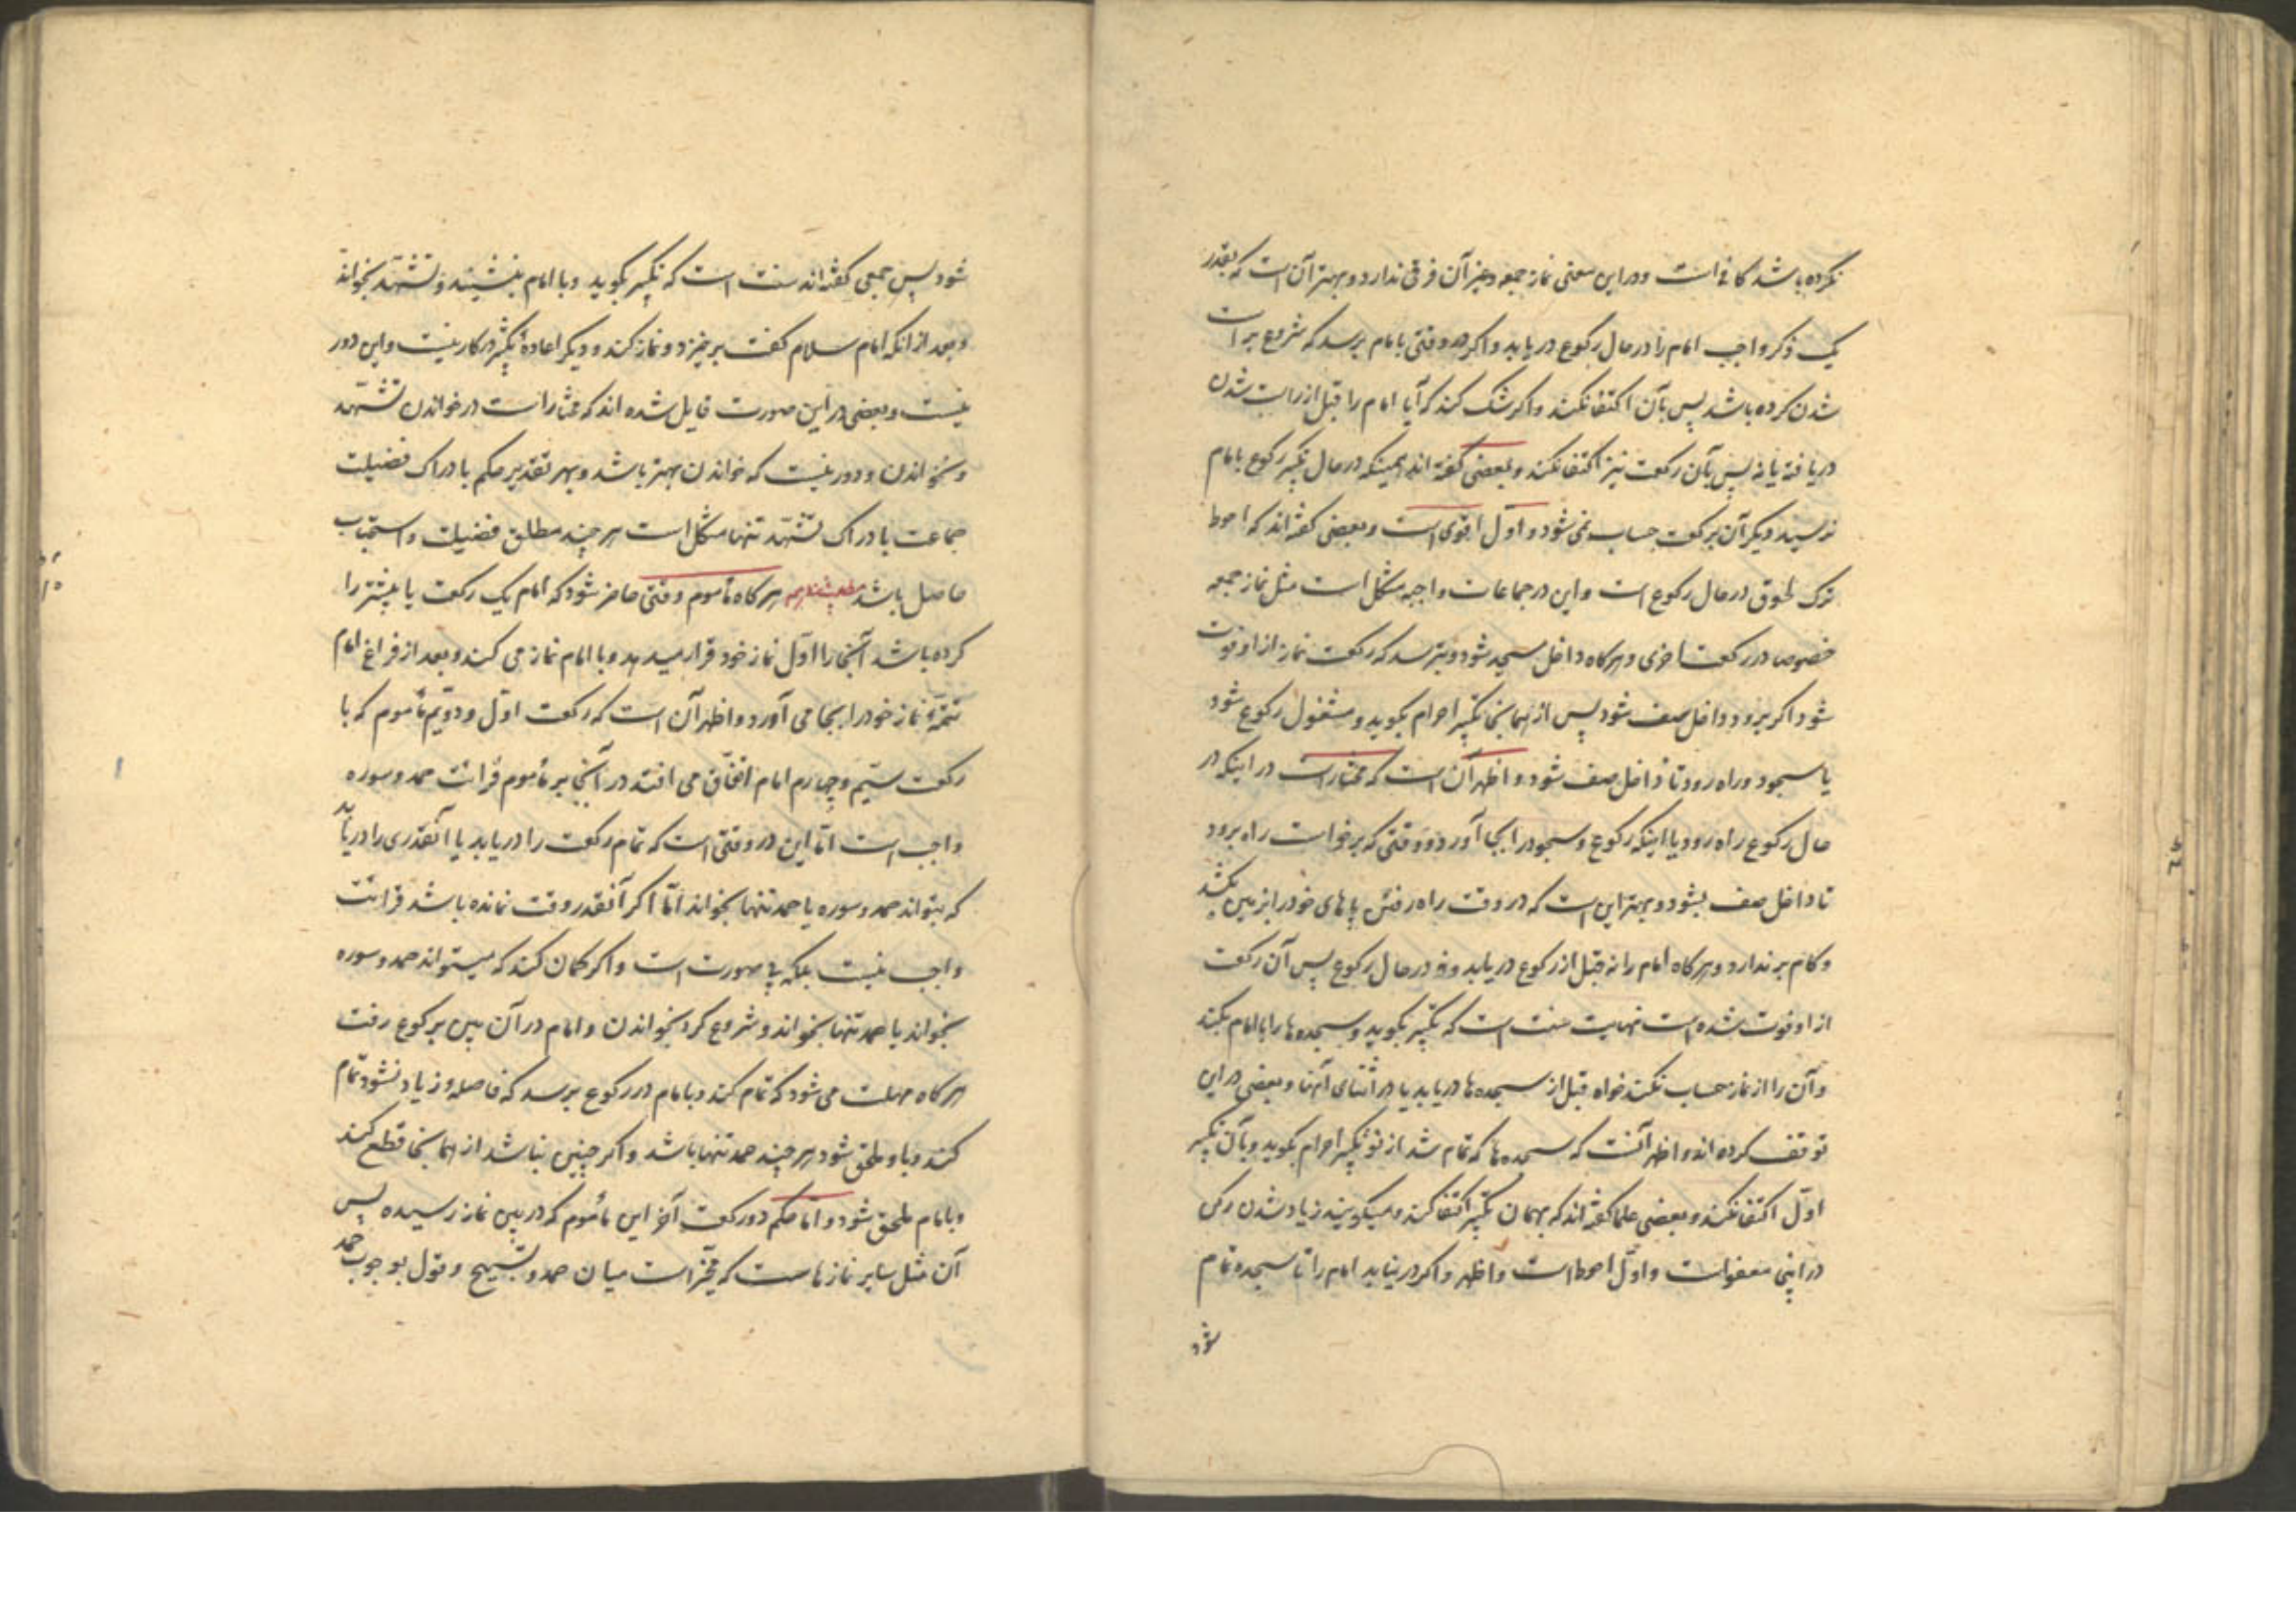 نکرده باشد کافی است و در این معنی نماز جمعه و غیر آن فرقی ندارد و بهتر آن است که بقدر
یک ذکر واجب امام را در حال رکوع دریابد و اگر در وقتی بامام برسد که شروع براست
شدن کرده باشد پس بآن اکتفا نکند و اگر شک کند که آیا امام را قبل از راست شدن
دریافته یا نه پس بآن رکعت نیز اکتفا نکند و بعضی گفته اند همینکه در حال تکبیر رکوع بامام
نرسید دیگر آن رکعت حساب نمی شود و اول اقوی است و بعضی گفته اند که احوط
ترک لحوق در حال رکوع است و این در جماعات واجبه مشکل است مثل نماز جمعه
خصوصا در رکعت اخری و هرگاه داخل مسجد شود و بترسد که رکعت نماز از او فوت
شود اگر برود داخل صف شود پس از همانجا تکبیر احرام بگوید و مشغول رکوع شود
یا سجود و راه رود تا داخل صف شود و اظهر آن است که مختار است در اینکه در
حال رکوع راه رود یا اینکه رکوع و سجود را بجا آورد و وقتی که برخواست راه برود
تا داخل صف بشود و بهتر این است که در وقت راه رفتن پاهای خود را بزمین بکشد
و گام بر ندارد و هرگاه امام را نه قبل از رکوع دریابد و نه در حال رکوع پس آن رکعت
از او فوت شده است نهایت سنت است که تکبیر بگوید و سجده ها را با امام بکند
و آن را از نماز حساب نکند خواه قبل از سجده ها دریابد یا در اثنای آنها و بعضی در این
توقف کرده اند و اظهر آنست که سجده ها که تمام شد از نو تکبیر احرام بگوید و بآن تکبیر
اول اکتفا نکند و بعضی علما گفته اند که بهمان تکبیر اکتفا کند و میگویند زیاد شدن رکن
در اینجا معفو است و اول احوط است و اظهر و اگر در نیابد امام را تا سجده تمام
شود
شود پس جمعی گفته اند سنت است که تکبیر بگوید و با امام بنشیند و تشهد بخواند
و بعد از آنکه امام سلام گفت برخیزد و نماز کند و دیگر اعادهٔ تکبیر در کار نیست و این دور
نیست و بعضی در این صورت قایل شده اند که مختار است در خواندن تشهد
و نخواندن و دور نیست که خواندن بهتر باشد و بهر تقدیر حکم بادراک فضیلت
جماعت بادراک تشهد تنها مشکل است هر چند مطلق فضیلت و استحباب
حاصل باشد هرگاه مأموم وقتی حاضر شود که امام یک رکعت یا بیشتر را
کرده باشد آنجا را اول نماز خود قرار میدهد و با امام نماز می کند و بعد از فراغ امام
تتمهٔ نماز خود را بجا می آورد و اظهر آن است که رکعت اول و دویم مأموم که با
رکعت سیم و چهارم امام اتفاق می افتد در آنجا بر مأموم قرائت حمد و سوره
واجب است اما این در وقتی است که تمام رکعت را دریابد یا آنقدری را دریابد
که بتواند حمد و سوره یا حمد تنها بخواند اما اگر آنقدر وقت نمانده باشد قرائت
واجب نیست بلکه بی صورت است و اگر گمان کند که میتواند حمد و سوره
بخواند یا حمد تنها بخواند و شروع کرد بخواندن و امام در آن بین برکوع رفت
هرگاه مهلت می شود که تمام کند و بامام در رکوع برسد که فاصله زیاد نشود تمام
کند و باو ملحق شود هر چند حمد تنها باشد و اگر چنین نباشد از همانجا قطع کند
و بامام ملحق شود و اما حکم دو رکعت آخر این مأموم که در بین نماز رسیده پس
آن مثل سایر نمازهاست که مخیر است میان حمد و تسبیح و قول بوجوب حمد